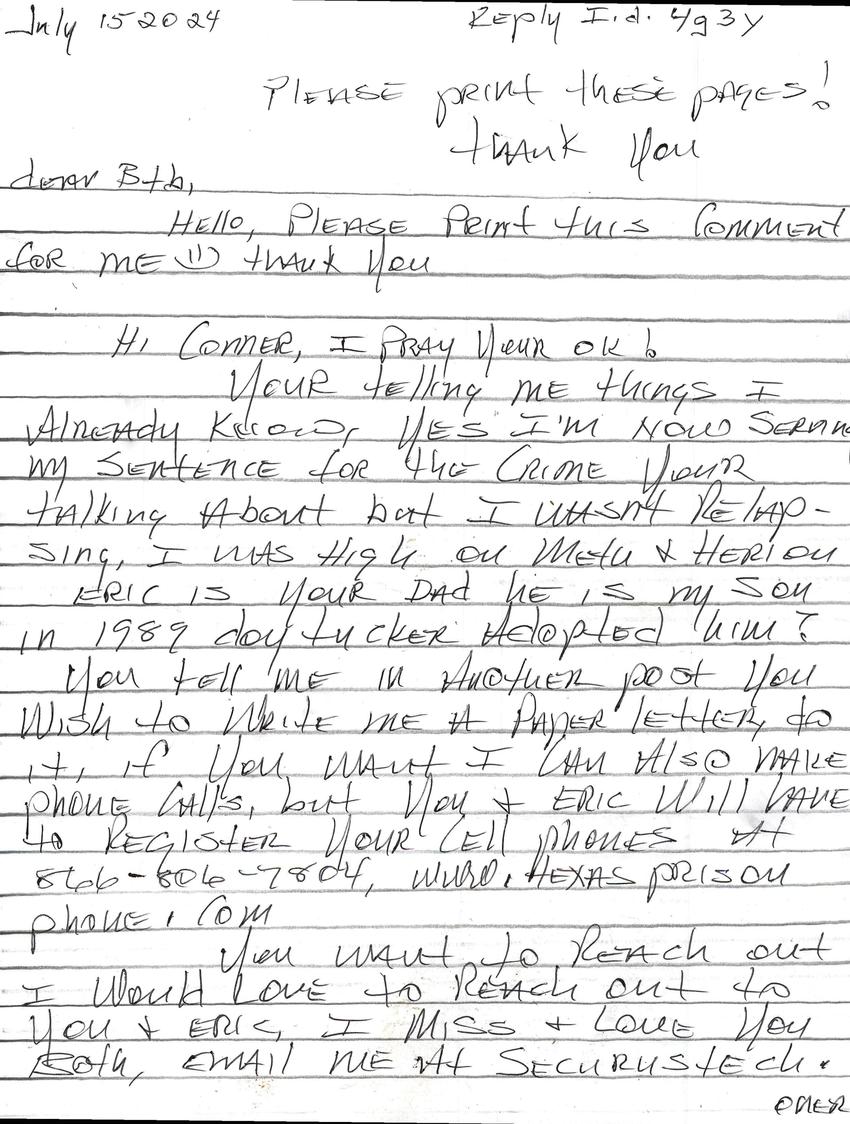 July 15 2024 Reply I.d. 4g3y
PLEASE print these pages!
thank you
dear Btb,
Hello, PLEASE Print this Comment
for me thank you
Hi Conner, I Pray your ok!
Your telling me things I
Already Know, Yes I'm now Servin
my sentence for the Crime your
talking About but I wasn't Relap-
sing, I was High on Meth & Herion
Eric is your Dad he is my son
in 1989 doy tucker Adopted him?
You tell me in Another post you
Wish to Write me A Paper letter, do
it, if you want I can Also make
phone Calls, but you & Eric Will have
to Register your Cell phones At
866-806-7804, www.texas prison
phone.com
You want to Reach out
I Would Love to Reach out to
you & Eric, I Miss & Love you
Both, email me At Securustech.
over